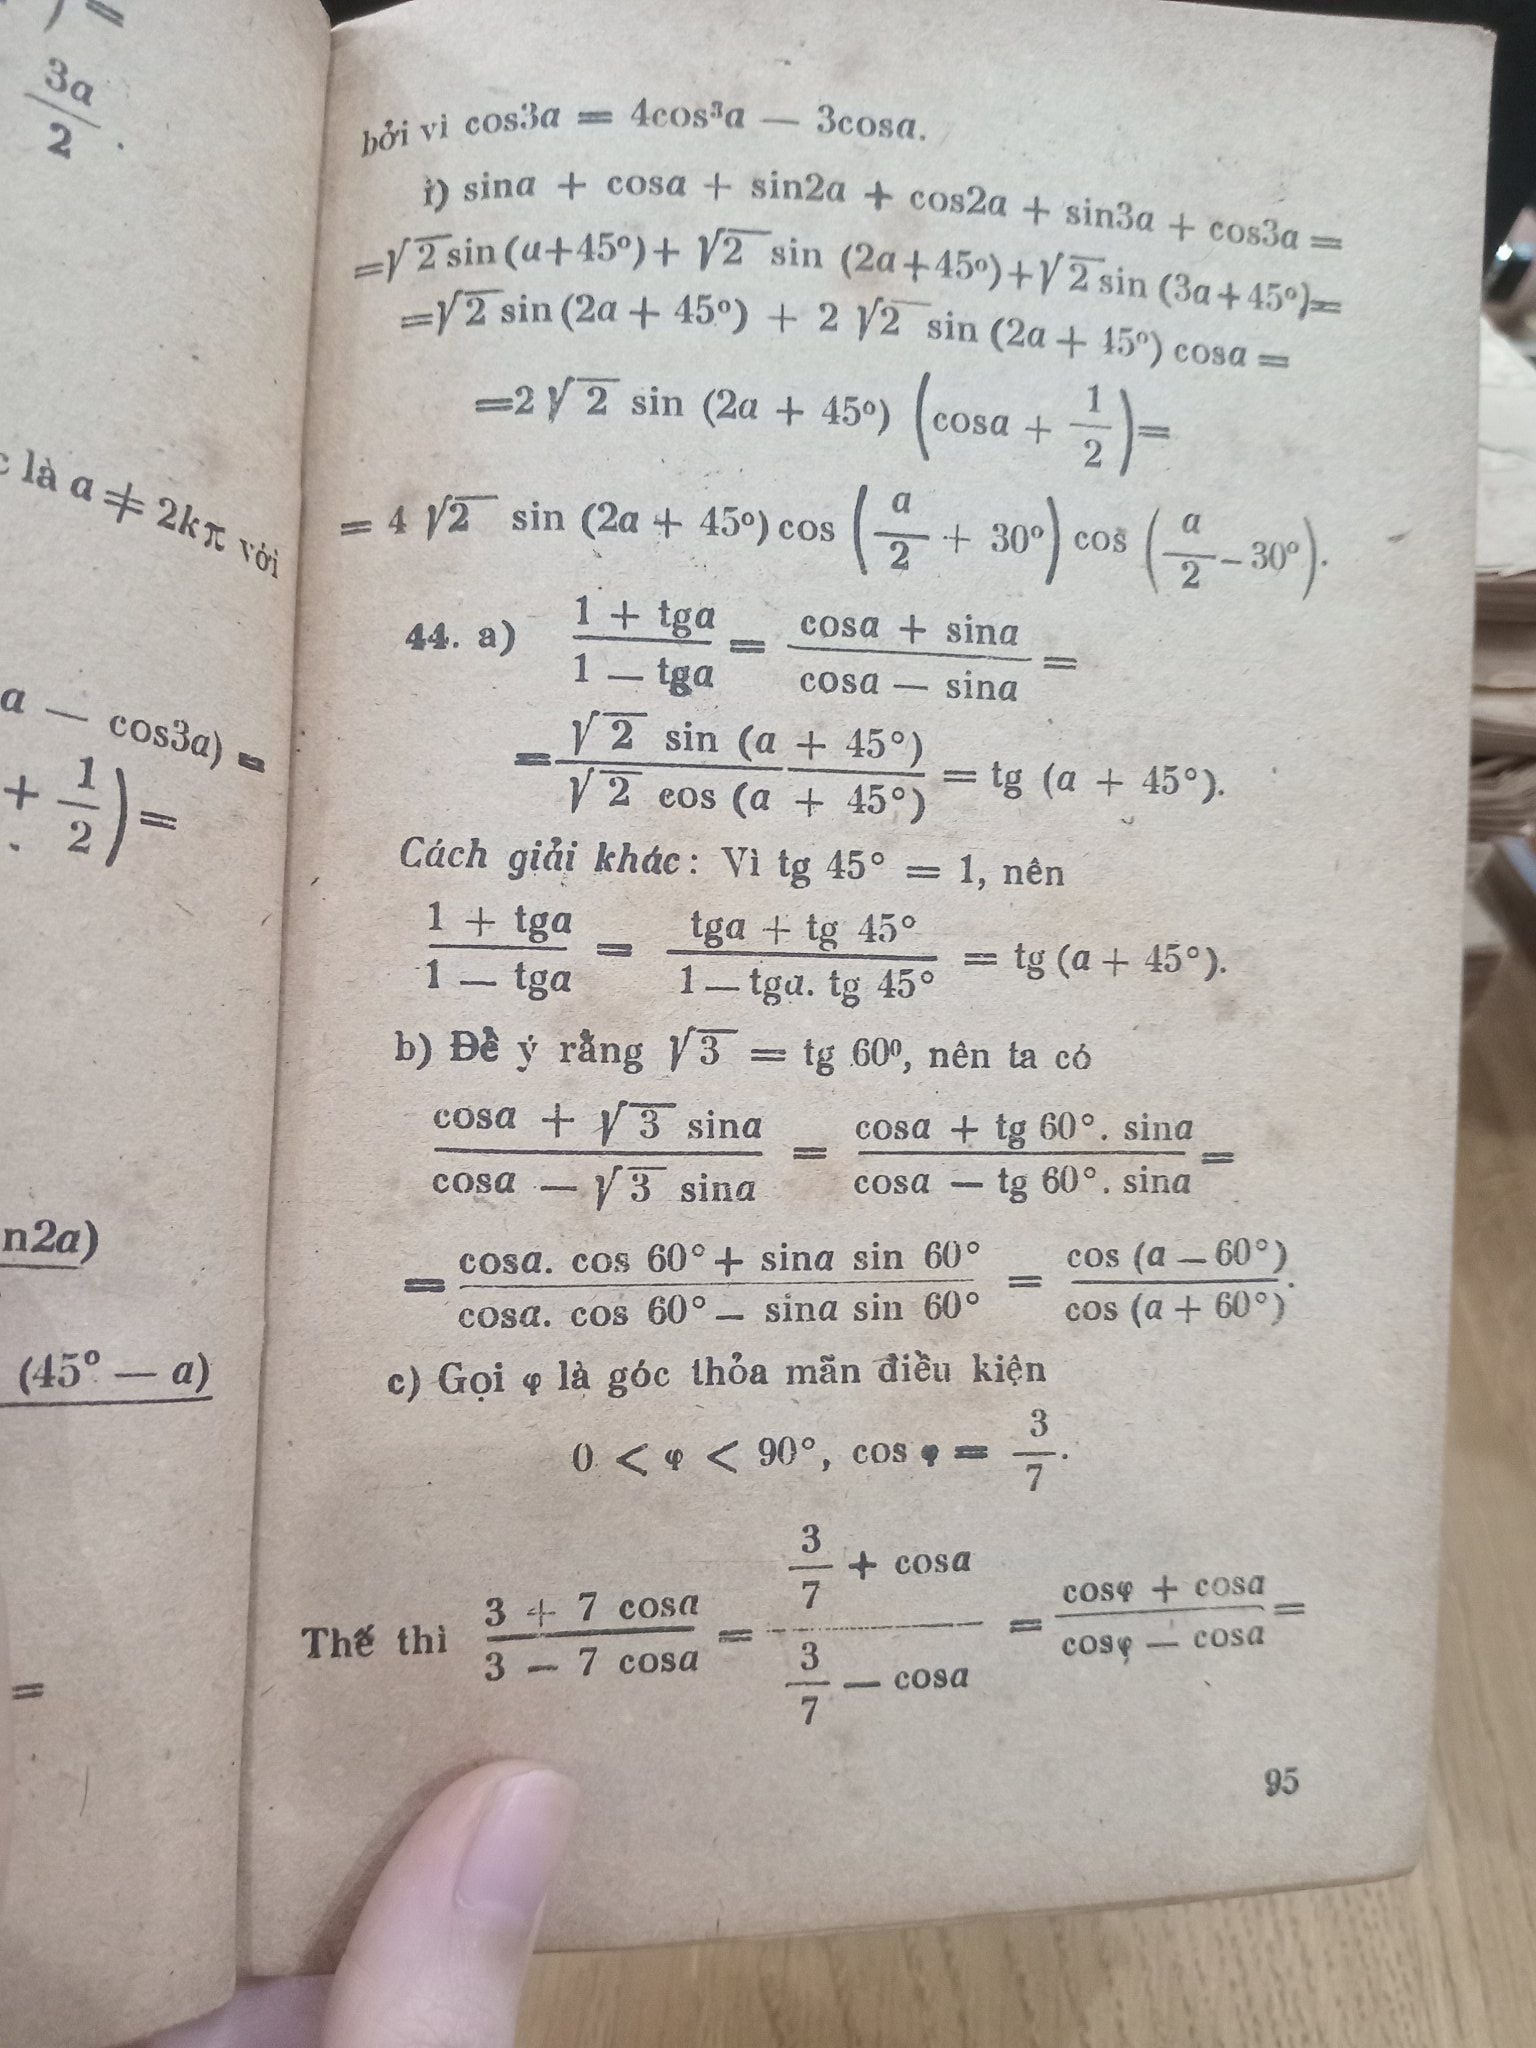 ) =
3a/2 .
c là a ≠ 2kπ với
a — cos3a) =
+ 1/2) =
n2a)
(45° — a)
=
bởi vì cos3a = 4cos³a — 3cosa.
i) sina + cosa + sin2a + cos2a + sin3a + cos3a =
=√2 sin (a+45°) + √2 sin (2a+45°) + √2 sin (3a+45°)=
=√2 sin (2a + 45°) + 2 √2 sin (2a + 45°) cosa =
=2 √2 sin (2a + 45°) (cosa + 1/2)=
= 4 √2 sin (2a + 45°) cos (a/2 + 30°) cos (a/2 – 30°).
44. a) (1 + tga)/(1 — tga) = (cosa + sina)/(cosa — sina) =
= (√2 sin (a + 45°))/(√2 cos (a + 45°)) = tg (a + 45°).
Cách giải khác: Vì tg 45° = 1, nên
(1 + tga)/(1 — tga) = (tga + tg 45°)/(1 — tga. tg 45°) = tg (a + 45°).
b) Để ý rằng √3 = tg 60°, nên ta có
(cosa + √3 sina)/(cosa — √3 sina) = (cosa + tg 60°. sina)/(cosa — tg 60°. sina) =
= (cosa. cos 60° + sina sin 60°)/(cosa. cos 60° — sina sin 60°) = (cos (a — 60°))/(cos (a + 60°)).
c) Gọi φ là góc thỏa mãn điều kiện
0 < φ < 90°, cos φ = 3/7.
Thế thì (3 + 7 cosa)/(3 — 7 cosa) = (3/7 + cosa)/(3/7 — cosa) = (cosφ + cosa)/(cosφ — cosa) =
95